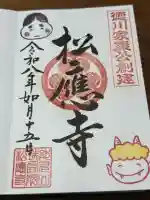 徳川家康公創建
松應寺
令和八年如月十五日